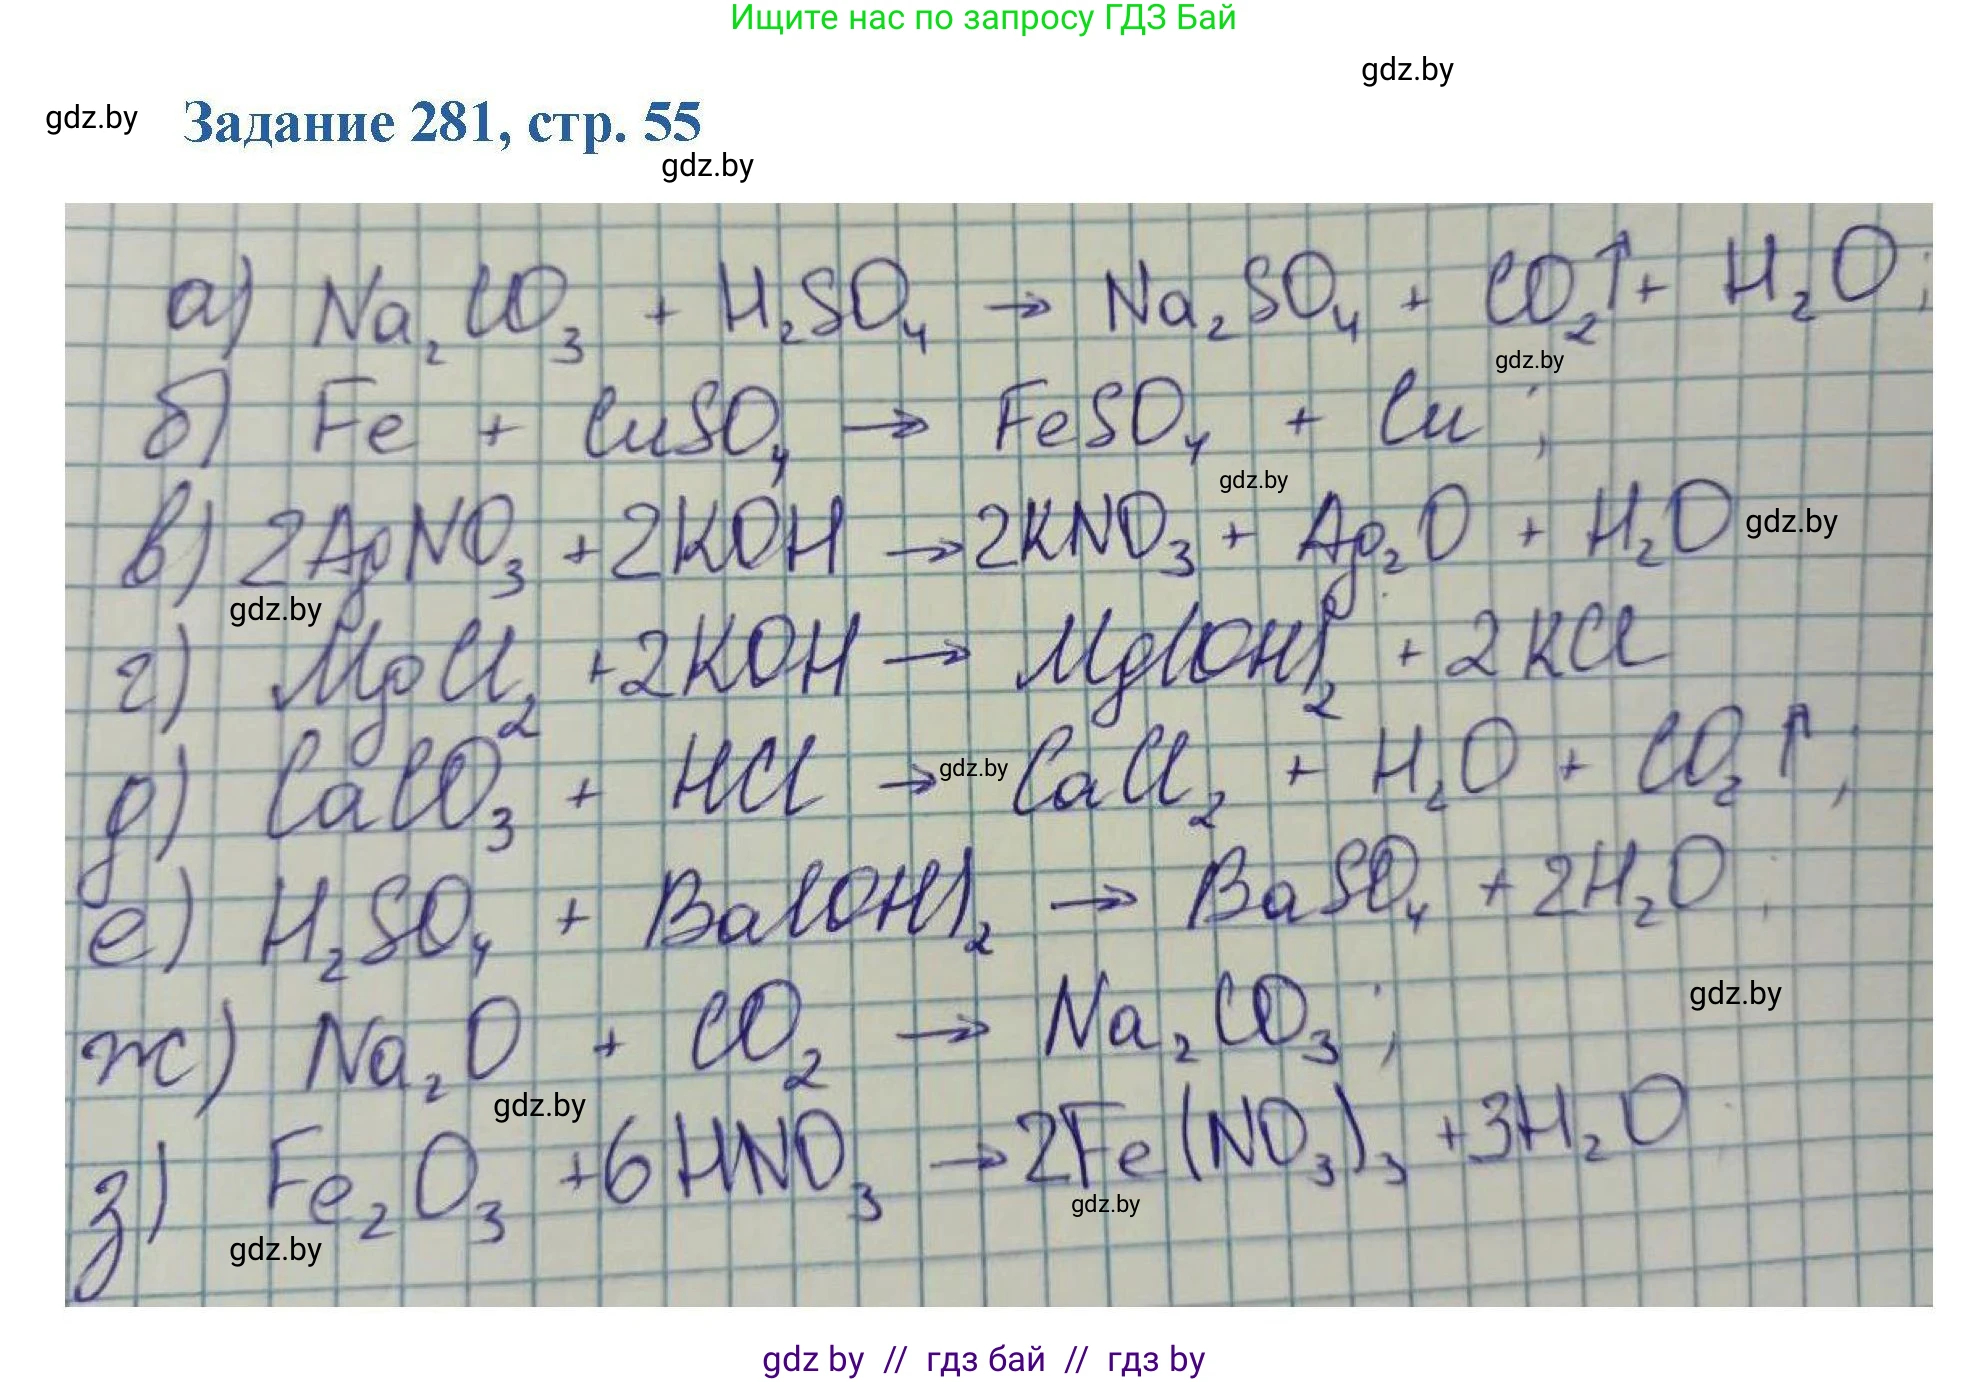 Ищите нас по запросу ГДЗ Бай
gdz.by
gdz.by Задание 281, стр. 55
gdz.by
а) Na₂CO₃ + H₂SO₄ → Na₂SO₄ + CO₂↑ + H₂O;
gdz.by
б) Fe + CuSO₄ → FeSO₄ + Cu;
gdz.by
в) 2AgNO₃ + 2KOH → 2KNO₃ + Ag₂O + H₂O gdz.by
gdz.by
г) MgCl₂ + 2KOH → Mg(OH)₂ + 2KCl
д) CaCO₃ + HCl → gdz.by CaCl₂ + H₂O + CO₂↑;
е) H₂SO₄ + Ba(OH)₂ → BaSO₄ + 2H₂O;
gdz.by
ж) Na₂O + CO₂ → Na₂CO₃;
gdz.by
з) Fe₂O₃ + 6HNO₃ → 2Fe(NO₃)₃ + 3H₂O
gdz.by
gdz.by
gdz by // гдз бай // гдз by